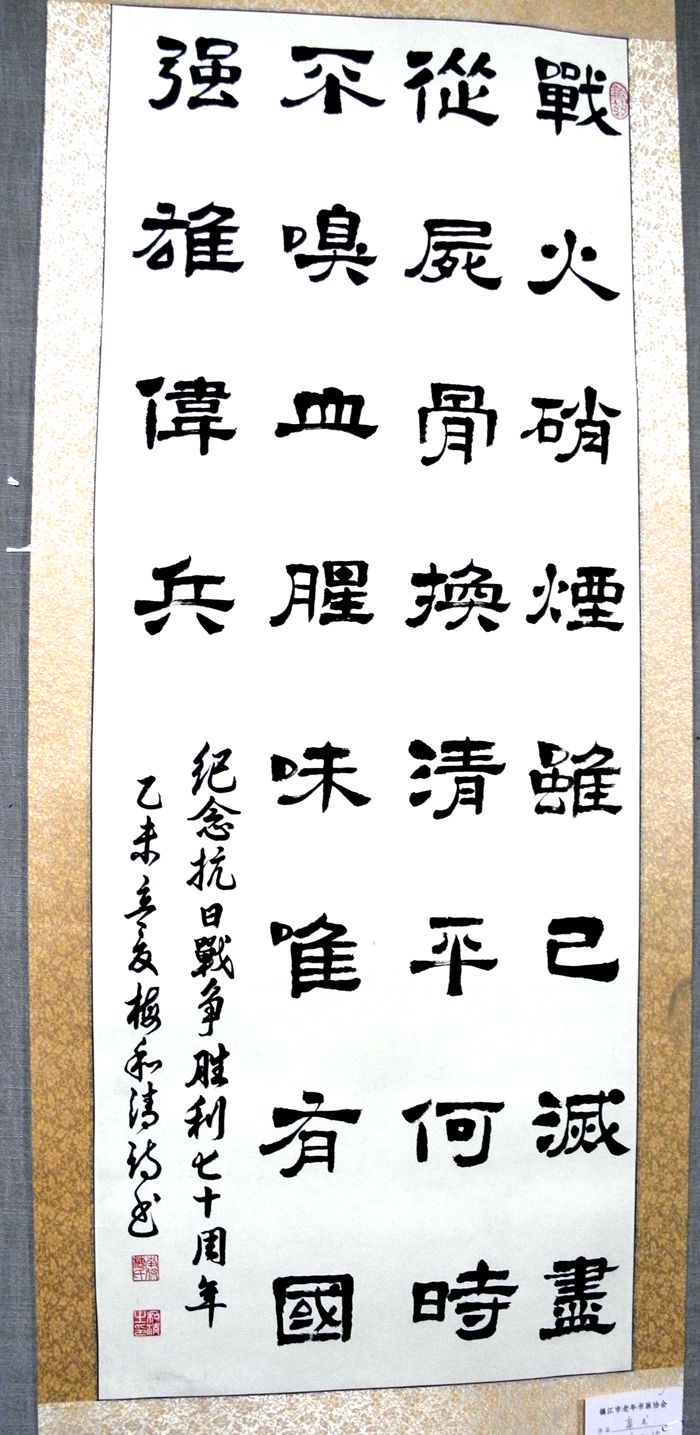 戰火硝煙雖已滅盡
從屍骨換清平何時
不嗅血腥味唯有國
强雄偉兵
纪念抗日戰争胜利七十周年
乙未立夏梅和清诗书
镇江市老年书画协会